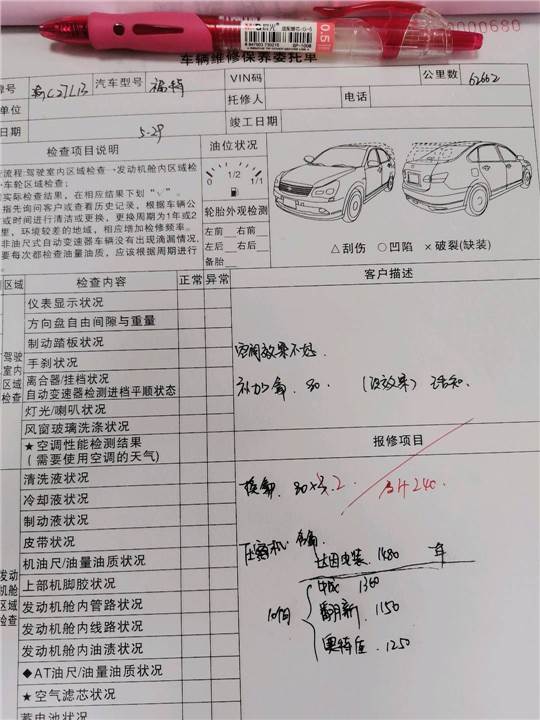 0.5
0000680
车辆维修保养委托单
牌号
汽车型号 福特
VIN码
公里数 62662
单位
托修人
电话
日期 5-29
竣工日期
检查项目说明
流程:驾驶室内区域检查→发动机舱内区域检
车轮区域检查;
实际检查结果,在相应结果下划“√”。
指先询问客户或查看历史记录,根据车辆公
或时间进行清洁或更换,更换周期为1年或2
里,环境较差的地域,相应增加检修频率。
非油尺式自动变速器车辆没有出现滴漏情况,
要每次都检查油量油质,应该根据周期进行
油位状况
0 1/2 1/1
轮胎外观检测
左前 右前
左后 右后
备胎
△刮伤 ○凹陷 ×破裂(缺装)
区域
检查内容
正常
异常
客户描述
驾驶
室内
区域
检查
仪表显示状况
方向盘自由间隙与重量
制动踏板状况
手刹状况
离合器/挂档状况
自动变速器检测进档平顺状态
灯光/喇叭状况
风窗玻璃洗涤状况
★空调性能检测结果
(需要使用空调的天气)
空调效果不好
补加氟 80 (没效果) 已告知
报修项目
发动
机舱
区域
检查
清洗液状况
冷却液状况
制动液状况
皮带状况
机油尺/油量油质状况
上部机脚胶状况
发动机舱内管路状况
发动机舱内线路状况
发动机舱内油渍状况
◆AT油尺/油量油质状况
★空气滤芯状况
蓄电池状况
换氟 80×3.2
合计240
压缩机:
1480 年
1360
翻新 1150
奥特佳 1250